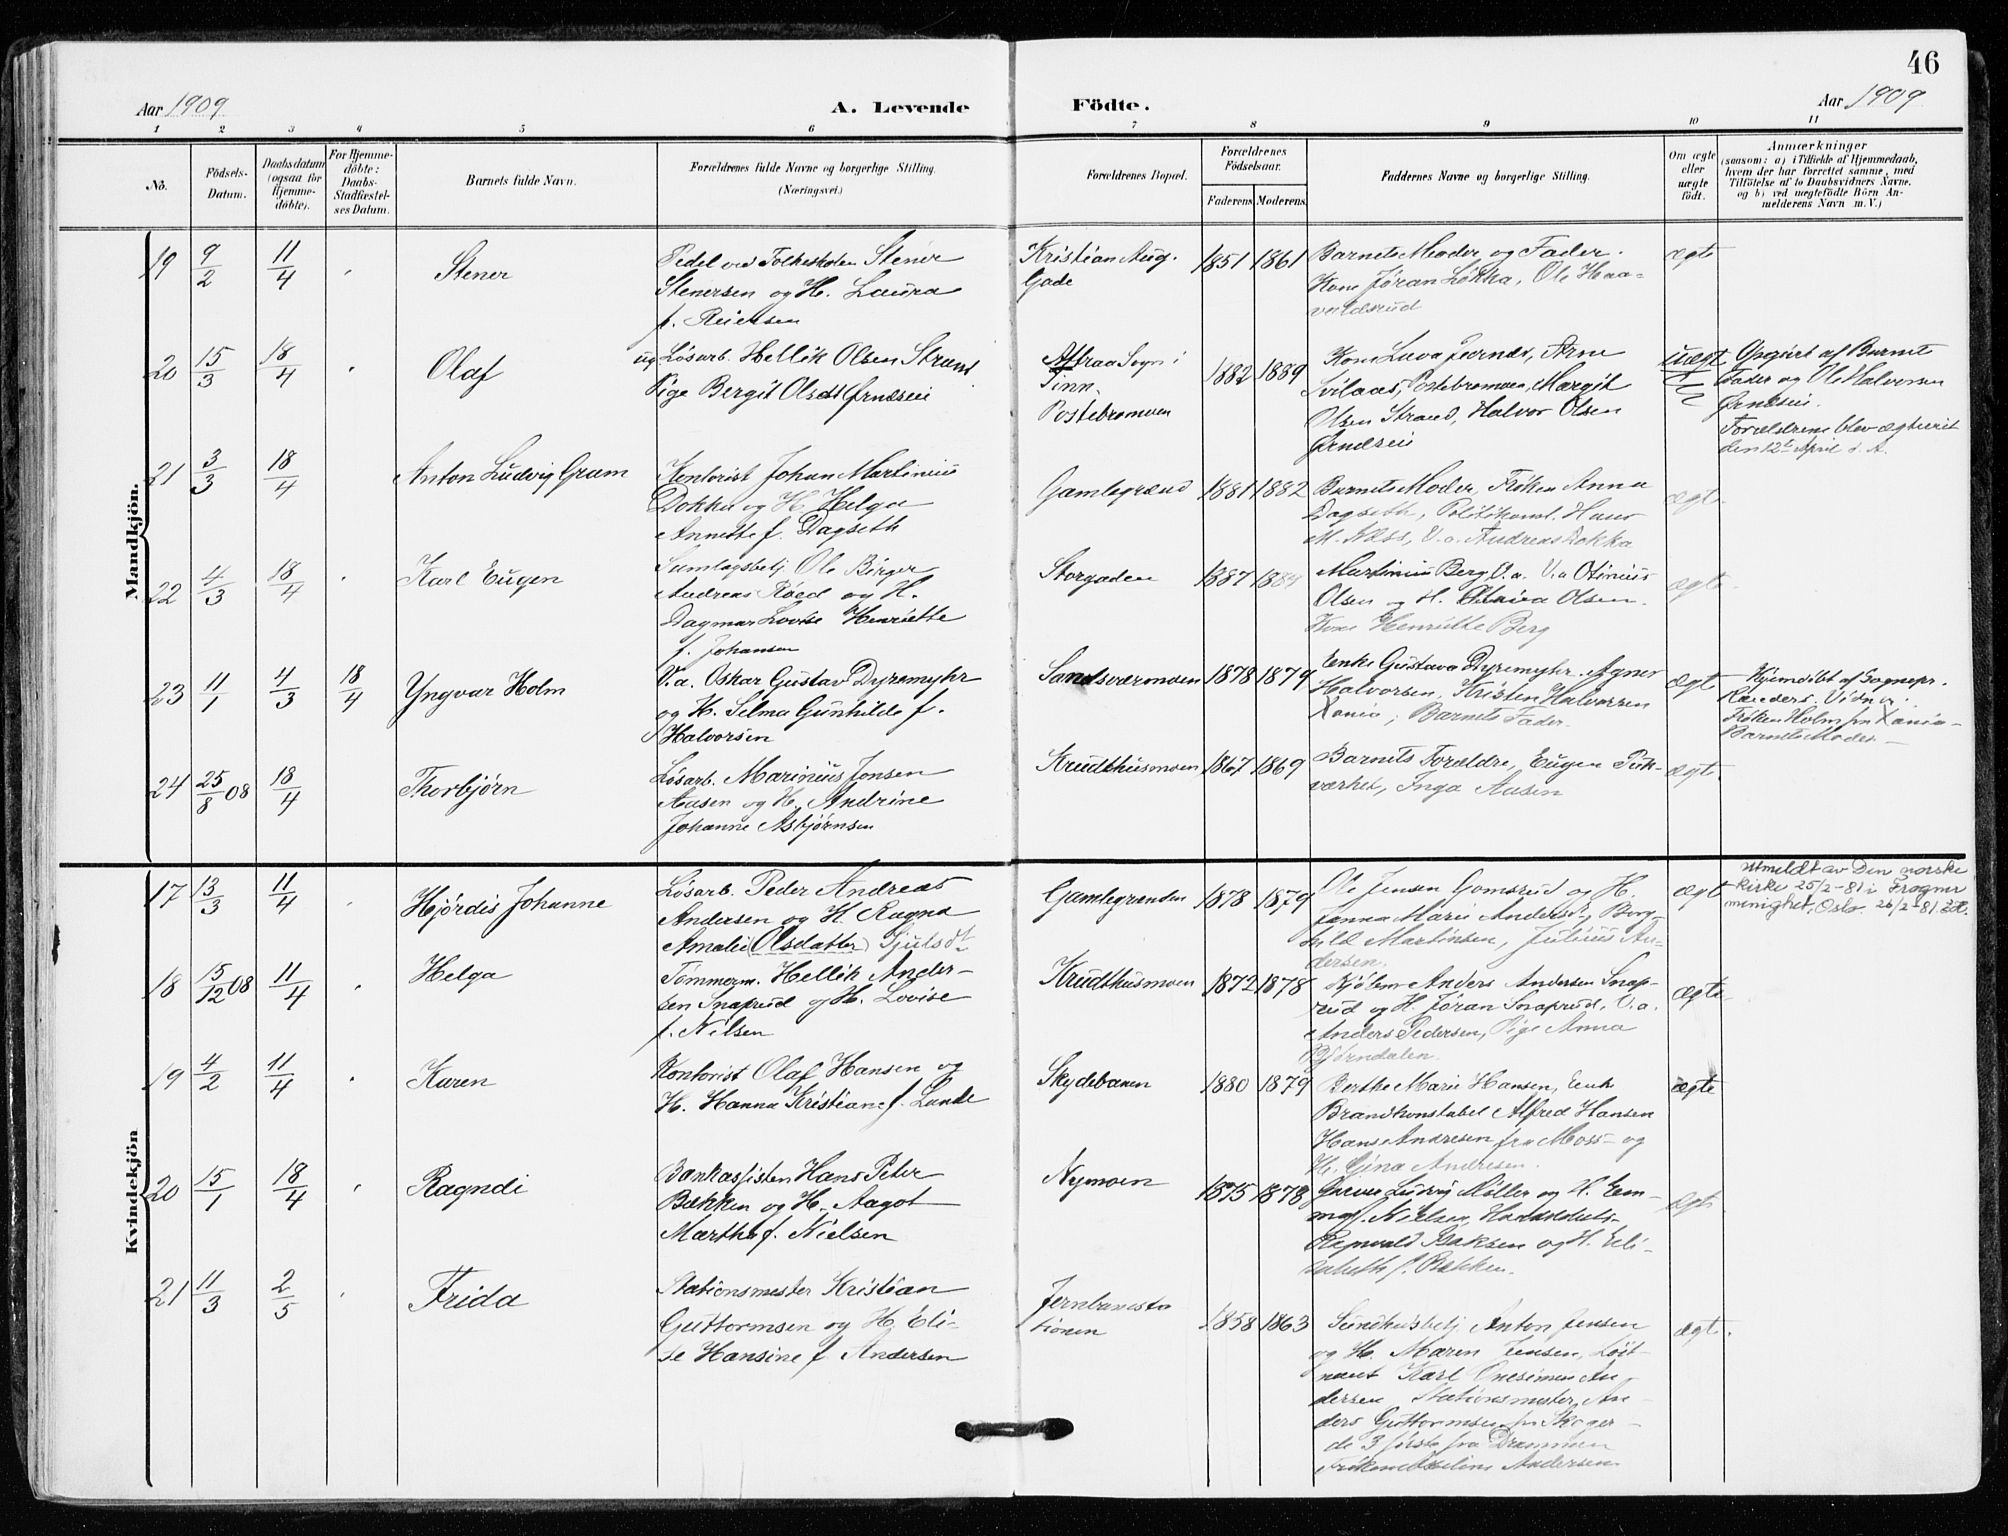 46
Aar 1909
A. Levende
Födte.
Aar 1909
1 2 3 4 5 6 7 8 9 10 11
No.
Födsels-
Datum.
Daabsdatum
(ogsaa for
Hjemme-
döbte).
For Hjemme-
döbte:
Daabs-
Stadfæstel-
ses Datum.
Barnets fulde Navn.
Forældrenes fulde Navne og borgerlige Stilling.
(Næringsvei.)
Forældrenes Bopæl.
Forældrenes
Födselsaar.
Faderens. Moderens.
Faddernes Navne og borgerlige Stilling.
Om ægte
eller
uægte
födt.
Anmærkninger
(saasom: a) i Tilfælde af Hjemmedaab,
hvem der har forrettet samme, med
Tilföielse af to Daabsvidners Navne,
og b) ved uegtefödte Börn An-
melderens Navn m. V.)
Mandkjön.
19 9/2 11/4
Stener
Pedel ved Folkeskolen Stener
Stenersen og H. Laura
f. Reiersen
Kristian Aug.
Gade
1851 1861
Barnets Moder og Fader.
Kone Jøran Løkka, Ole Haa-
valdsrud
ægte
20 15/3 18/4
Olaf
ug Løsarb. Hellik Olsen Strand
Pige Bergit Olsdt Ørnesei
Atraa Sogn i
Tinn.
Postebromoen
1882 1889
Kone Arne
Svilaas, Postebromoen, Margit
Olsen Strand, Halvor Olsen
uægt
Opgivet af Barnets
Fader og Ole Halvorsen
Forældrene blev ægteviet
den 12t April d. A.
21 3/3 18/4
Anton Ludvig Gram
Kontorist Johan Martinius
Dokka og H. Helga
Annette f. Dagseth
Gamlegrænd
1881 1882
Barnets Moder, Frøken Anna
Dagseth, Politikonst. Hans
M. Næss, V. a. Andreas Dokka
ægt
22 4/3 18/4
Karl Eugen
Samlagsbetj. Ole Birger
Andreas Røed og H.
Dagmar Lovise Henriette
f. Johansen
Storgaden
1887 1884
Martinius Berg, V. a. Otinius
Olsen og H. Olsen.
Kone Henriette Berg
ægte
23 11/1 4/3 18/4
Yngvar Holm
V. a. Oskar Gustav Dyremyhr
og H. Selma Gunhilde f.
Halvorsen
Sandsværmoen
1878 1879
Enke Gustava Dyremyhr. Agnes
Halvorsen, Kristen Halvorsen
Xania, Barnets Fader.
ægt
Hjemdøbt af Sognepr.
Vidner:
Frøken Holm fra Xania
Barnets Moder
24 25/8 08 18/4
Thorbjørn
Løsarb. Marinius Jonsen
Aasen og H. Andrine
Johanne Asbjørnsen
Krudthusmoen
1867 1869
Barnets Forældre, Eugen
Inga Aasen
ægte
Kvindekjön
17 13/3 11/4
Hjørdis Johanne
Løsarb. Peder Andreas
Andersen og H. Ragna
Amalie (Olsdatter)
Gamlegrænden
1878 1879
Ole Jensen Gomsrud og H.
Janna Marie Andersdt, Borg-
hild Martinsen, Julius An-
dersen.
ægt
Utmeldt av Den norske
kirke 25/2-81 i Frogner
menighet, Oslo. 26/2-81.
18 15/12 08 11/4
Helga
Tømmerm. Hellik Ander-
sen Snaprud og H. Lovise
f. Nilsen
Krudthusmoen
1872 1878
Anders Andersen Snap-
rud og H. Jøran Snaprud, V. a.
Anders Pedersen, Pige Anna
Bjørndalen.
ægte
19 4/2 11/4
Karen
Kontorist Olaf Hansen og
H. Hanna Kristiane f. Lunde
Skydebanen
1880 1879
Berthe Marie Hansen, Enke
Brandkonstabel Alfred Hansen
Hans Andresen fra Moss og
H. Gina Andresen.
ægte
20 15/1 18/4
Ragndi
Bankassisten Hans Peter
Bækken og H. Aagot
Marthe f. Nielsen
Nymoen
1875 1878
Ludvig Møller og H. Em-
ma f. Nielsen,
Isaksen og H. Eli-
sabeth f. Bækken.
ægte
21 11/3 2/5
Frida
Stationsmester Kristian
Guttormsen og H. Eli-
se Hansine f. Andersen
Jernbanesta
tionen
1858 1863
Sundhusbetj. Anton Jensen
og H. Maren Jensen, Løit-
nant Karl Onesimus An-
dersen Stationsmester An-
ders Guttormsen fra Skoger
de 3 første fra Drammen
Andersen.
ægte